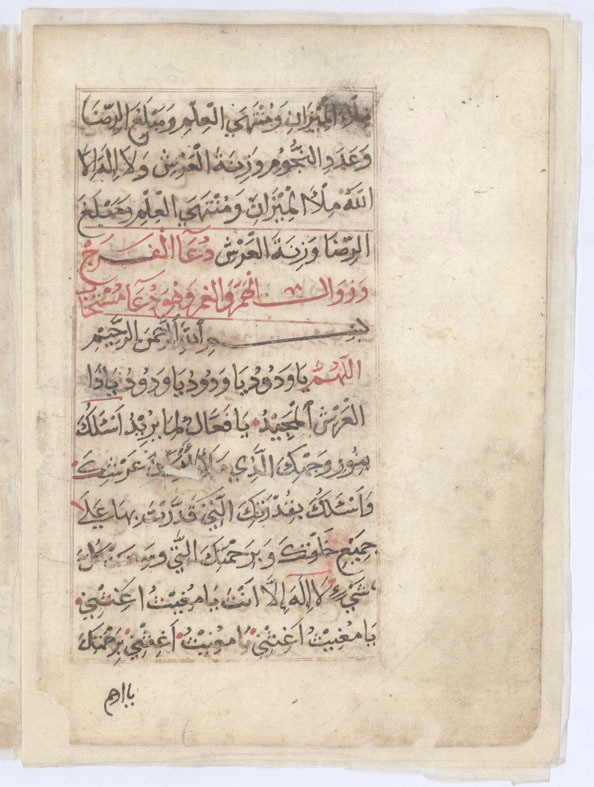 ملأ الميزان ومنتهي العلم ومبلغ الرضا
وعدد النجوم وزنة العرش ولا اله الا
الله ملأ الميزان ومنتهي العلم ومبلغ
الرضا وزنة العرش دعآ الفرج
وزوال الهم والغم وهو دعآ مستجاب
بسم الله الرحمن الرحيم
اللهم يا ودود يا ودود يا ودود يا ذا
العرش المجيد يا فعال لما يريد اسئلك
بنور وجهك الذي ملأ اركان عرشك
واسئلك بقدرتك التي قدرت بها علي
جميع خلقك وبرحمتك التي وسعت كل
شيء لا اله الا انت يا مغيث اغثني
يا مغيث اغثني يا مغيث اغثني برحمتك